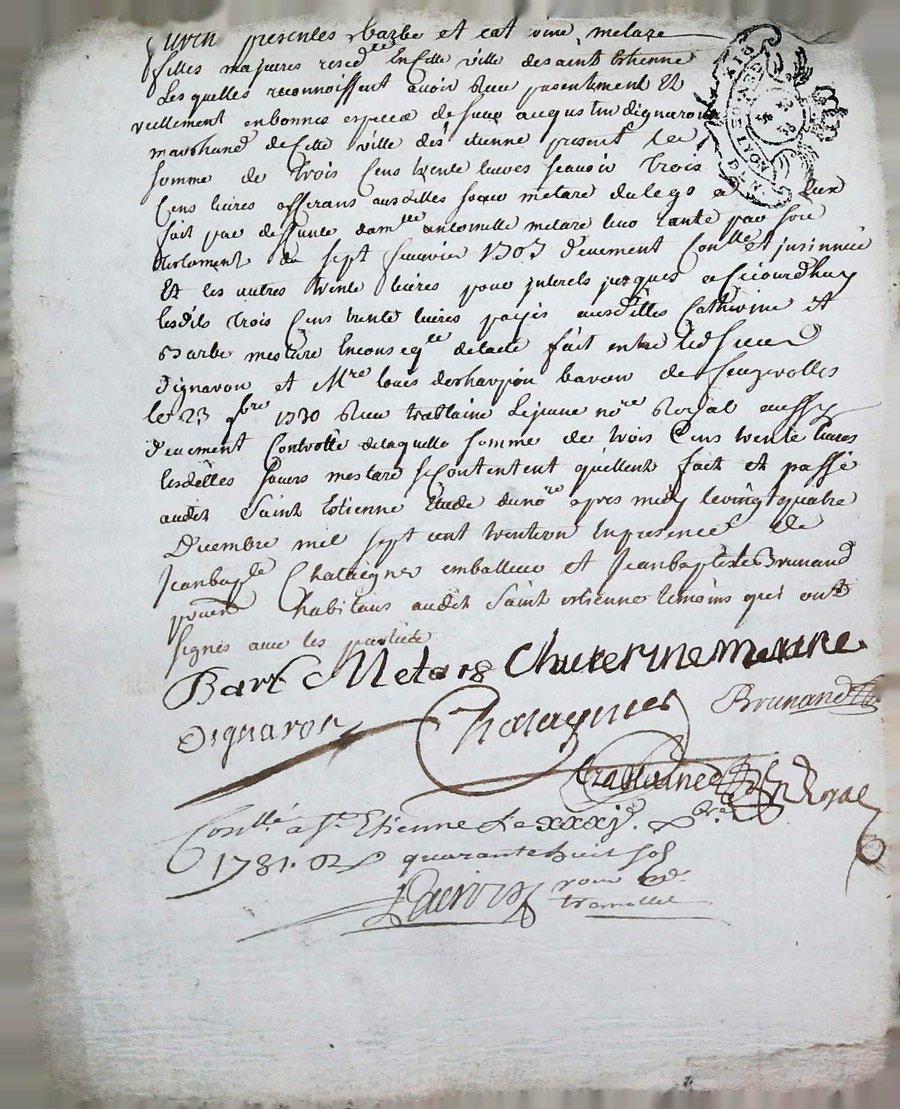 furen presentes Barbe et cat rine metare
filles majeures resid.te en cette ville de saint Etienne
Les quelles reconnoissent avoir Reçu presentement Et
réellement en bonnes especes de sieur augustin dignaron
marchand de cette ville de s.t etienne present La
somme de trois Cens trente livres scavoir Trois
Cens livres afferans ausdittes soeurs metare du legs a Eux
fait par deffunte dam.lle antoinette metare leur tante par son
testament du sept Janvier 1703 d'euement Con.llé et jnsinnüé
Et les autres trente livres pour jnterets jusques a Cejourdhuy
lesdits trois Cens trente livres payés ausdittes Catherine et
Barbe mestare En conseq.ce de lacte fait entre led Sieur
Dignaron et M.re louis de charpin baron de feugerolles
le 23 9.bre 1730 Reçu trablaine Lejeune no.re Royal aussy
d'euement Controllé de laquelle somme de trois Cens trente livres
lesdittes soeurs mestare se Contentent quittent fait et passé
audit Saint Etienne Etude du no.re apres midy le vingt quatre
Decembre mil sept cent trente un En presence de
Jean bap.te Chataigner emballeur et Jean baptiste Brunand
habitans audit Saint etienne temoins qui ont
signés avec les parties
Barbe Metare Chaterine metare
Dignaron Chataignier Brunand
trablaine n.re Royal
Con.llé a S.t Etienne Le xxxj.e x.bre
1731. R quarante huit sols
Lacroix pour m.r
tramollet